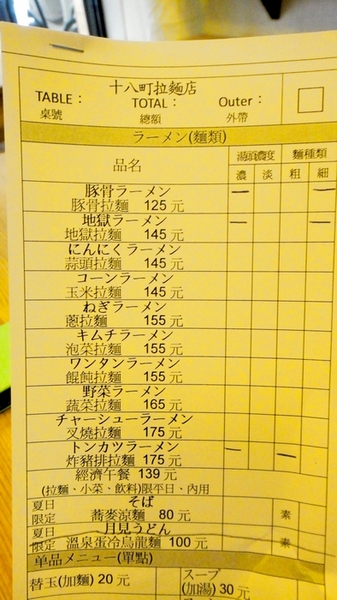 十八町拉麵店
TABLE： TOTAL： Outer：
桌號 總額 外帶
ラーメン(麵類)
品名 湯頭濃度 麵種類
濃 淡 粗 細
豚骨ラーメン
豚骨拉麵 125 元
地獄ラーメン
地獄拉麵 145 元
にんにくラーメン
蒜頭拉麵 145 元
コーンラーメン
玉米拉麵 145 元
ねぎラーメン
蔥拉麵 155 元
キムチラーメン
泡菜拉麵 155 元
ワンタンラーメン
餛飩拉麵 155 元
野菜ラーメン
蔬菜拉麵 165 元
チャーシューラーメン
叉燒拉麵 175 元
トンカツラーメン
炸豬排拉麵 175 元
經濟午餐 139 元
(拉麵、小菜、飲料)限平日、內用
夏日 そば
限定 蕎麥涼麵 80 元 素
夏日 月見うどん
限定 溫泉蛋冷烏龍麵 100 元 素
单品メニュー(單點)
替玉(加麵) 20 元 スープ
(加湯) 30 元